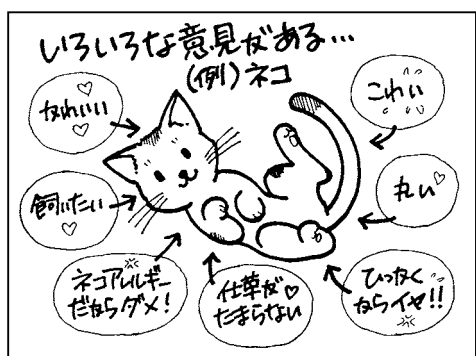 いろいろな意見がある…
(例)ネコ
かわいい
こわい
飼いたい
丸い
ネコアレルギー
だからダメ!
仕草が
たまらない
ひっかく
からイヤ!!